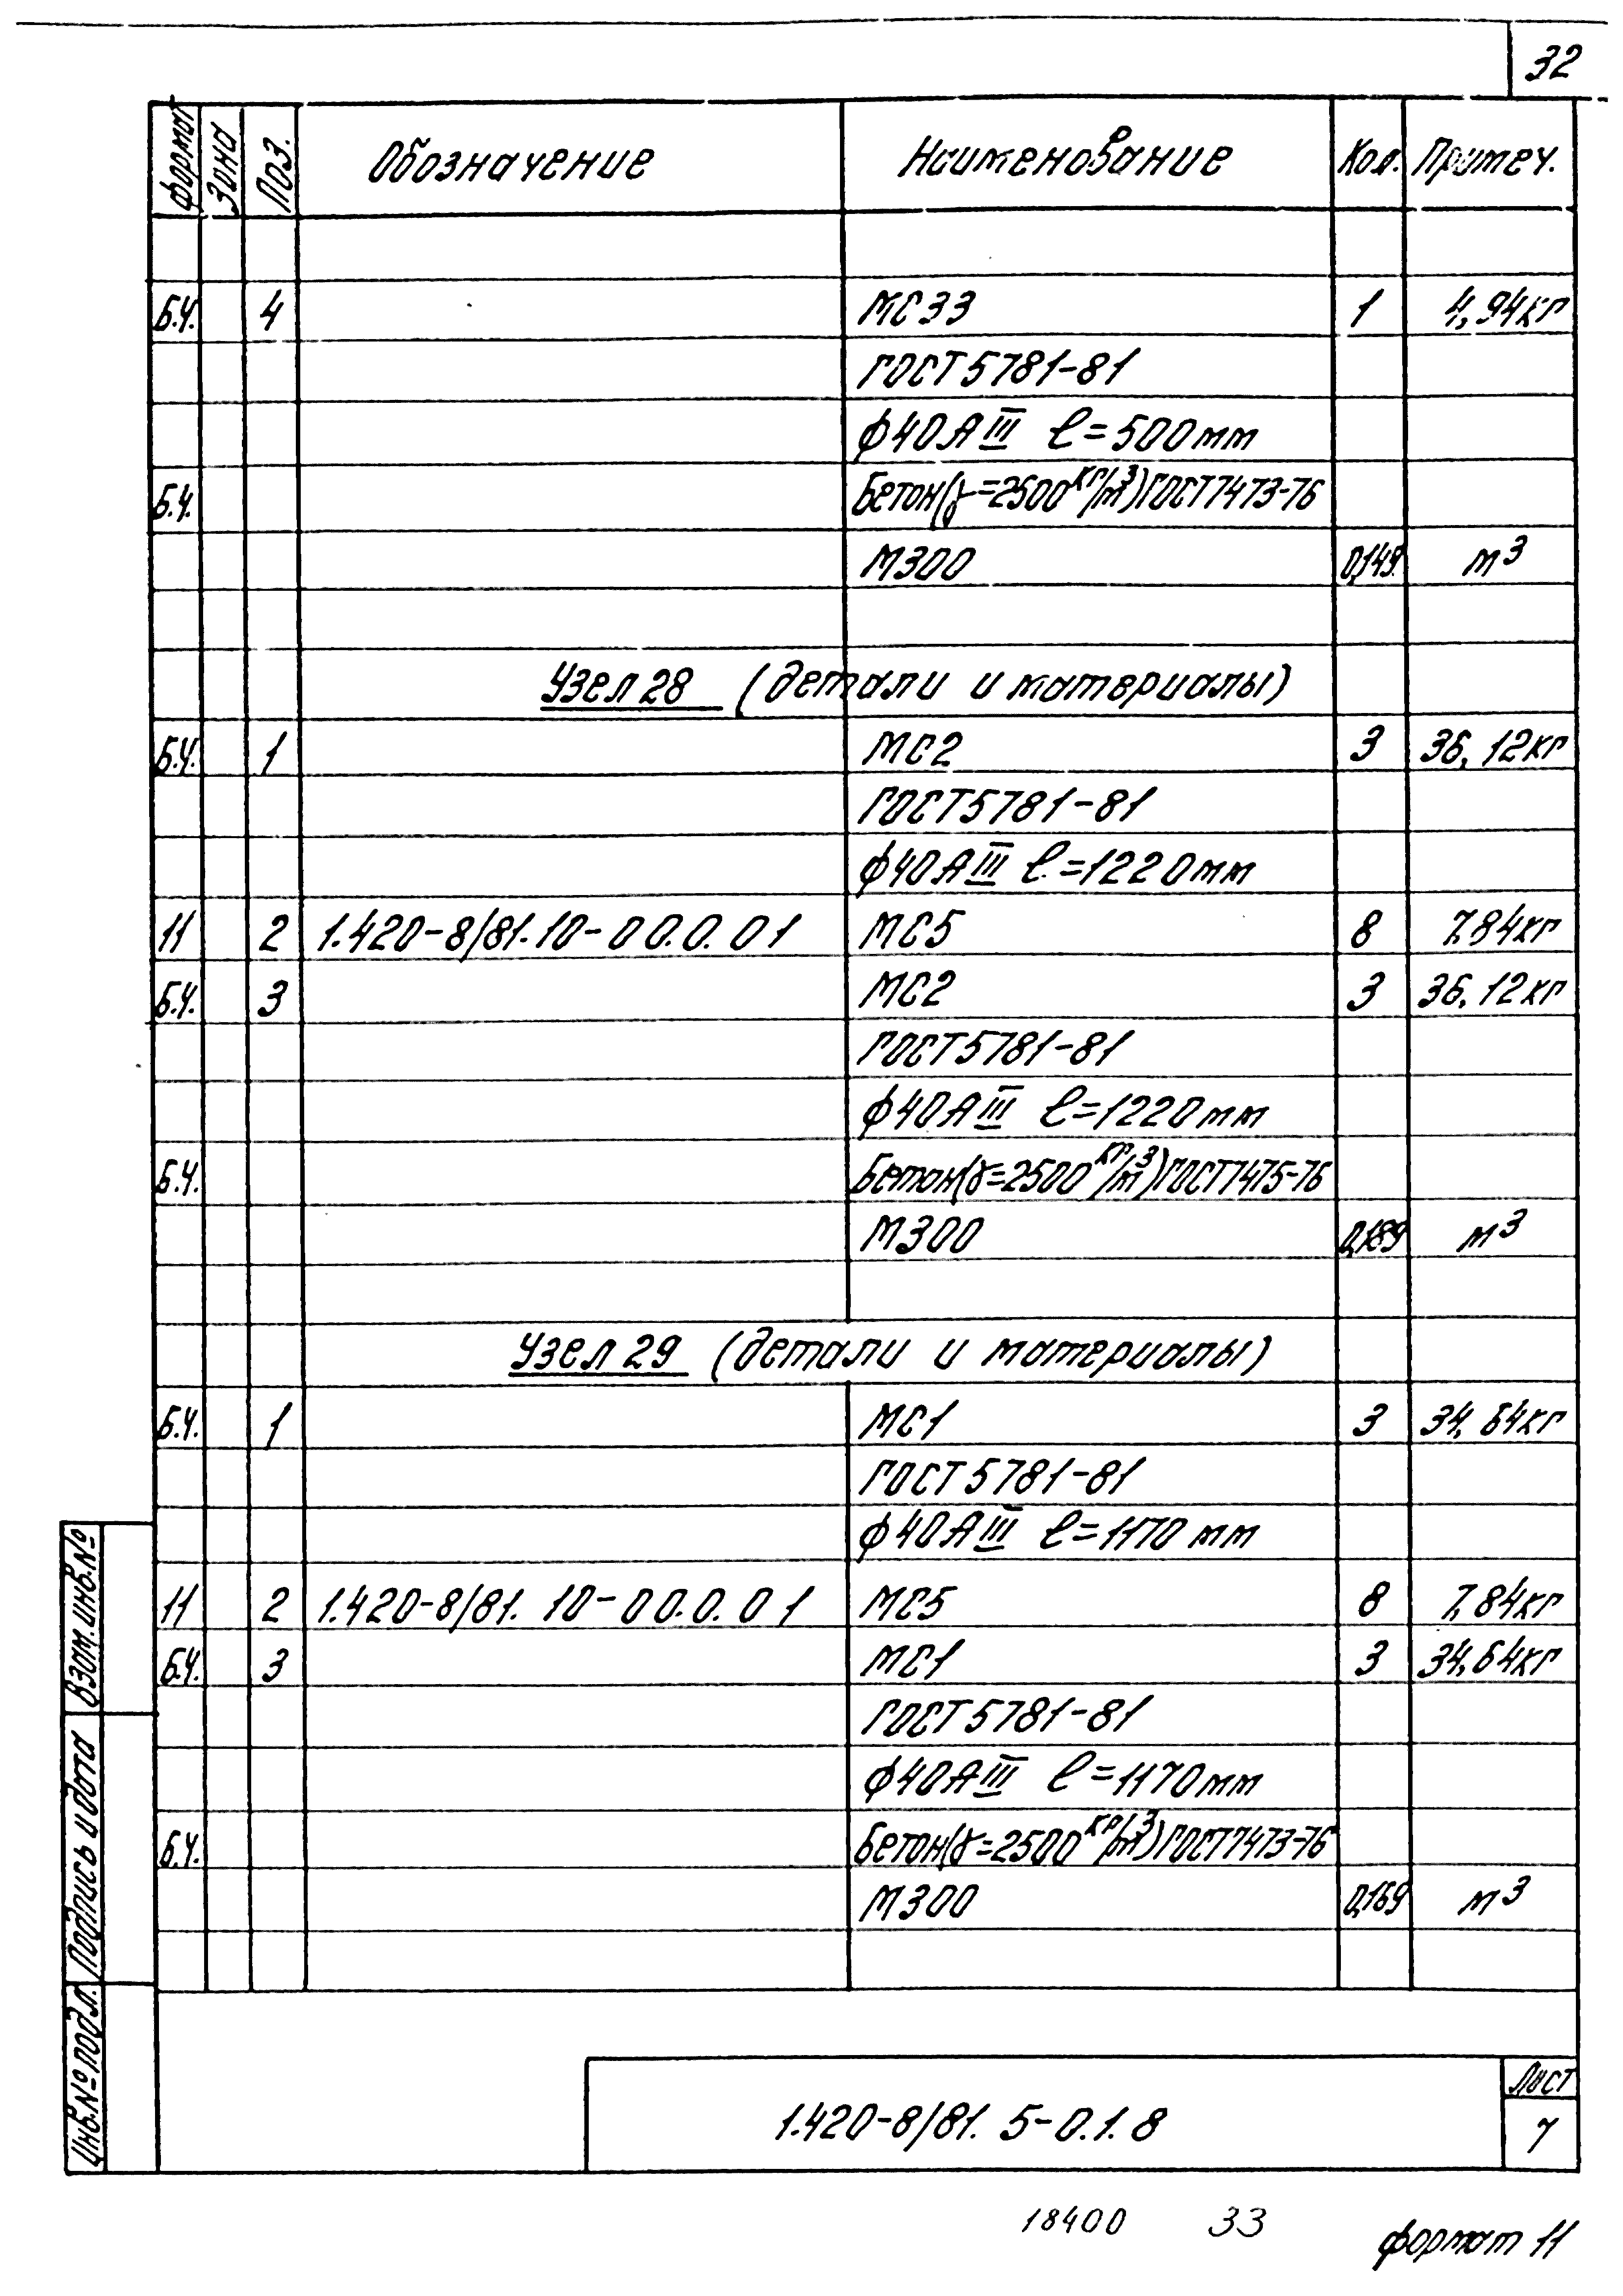 32
Формат Зона Поз. Обозначение Наименование Кол. Примеч.
Б.Ч. 4 МС33 1 4,94кг
ГОСТ 5781-81
ф40АIII ℓ=500мм
Б.Ч. Бетон(γ=2500кг/м³)ГОСТ7473-76
М300 м³
Узел 28 (детали и материалы)
Б.Ч. 1 МС2 3 36,12кг
ГОСТ5781-81
ф40АIII ℓ=1220мм
11 2 1.420-8/81.10-00.0.01 МС5 8 7,84кг
Б.Ч. 3 МС2 3 36,12кг
ГОСТ5781-81
ф40АIII ℓ=1220мм
Б.Ч. Бетон(γ=2500кг/м³)ГОСТ7475-76
М300 0,189 м³
Узел 29 (детали и материалы)
Б.Ч. 1 МС1 3 34,64кг
ГОСТ 5781-81
ф40АIII ℓ=1170мм
11 2 1.420-8/81.10-00.0.01 МС5 8 7,84кг
Б.Ч. 3 МС1 3 34,64кг
ГОСТ 5781-81
ф40АIII ℓ=1170мм
Б.Ч. Бетон(γ=2500кг/м³)ГОСТ7473-76
М300 0,169 м³
Взам.инв.№
Подпись и дата
Инв.№ подл.
1.420-8/81. 5-0.1.8
Лист
7
18400 33
формат 11